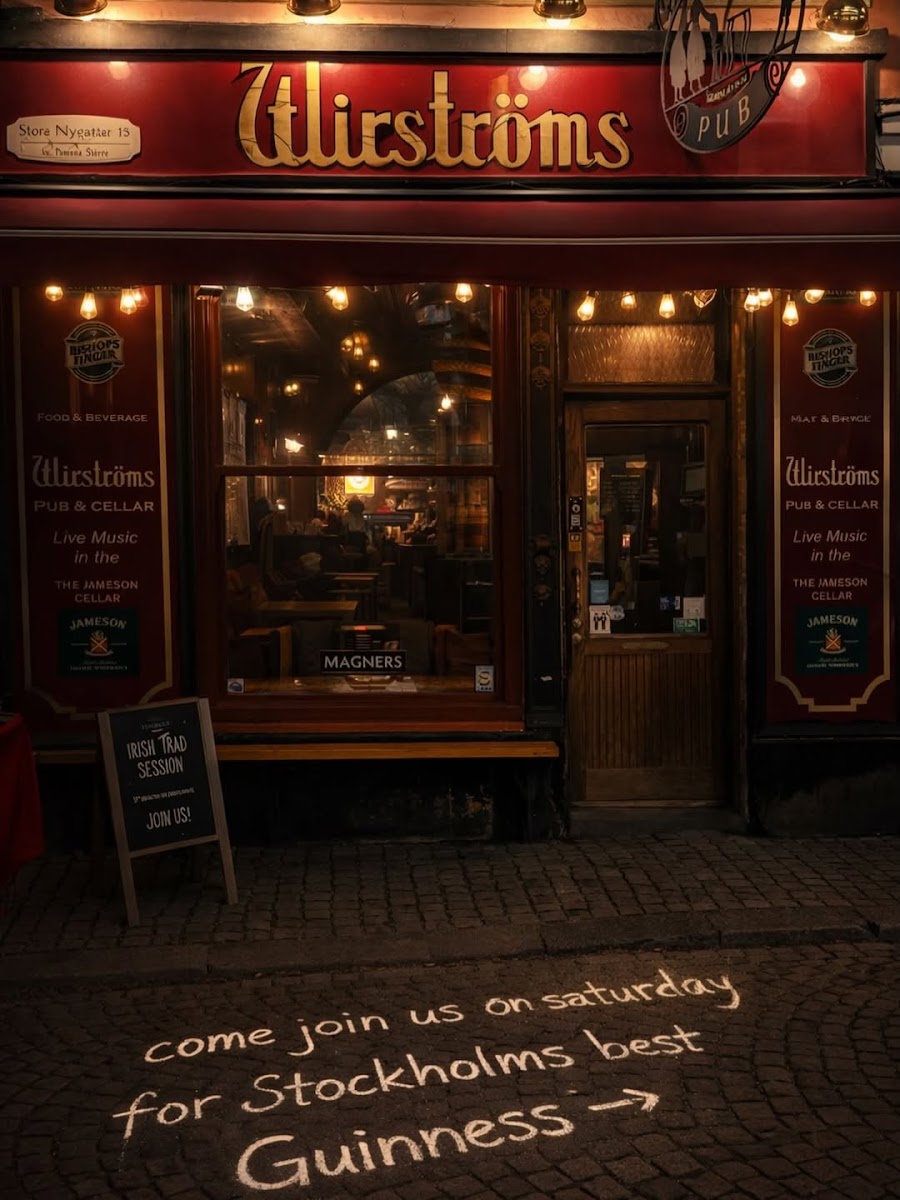 Wirströms
PUB
Store Nygatter 15
BISHOPS
FINGER
FOOD & BEVERAGE
Wirströms
PUB & CELLAR
Live Music
in the
THE JAMESON
CELLAR
JAMESON
MAGNERS
BISHOPS
FINGER
Wirströms
PUB & CELLAR
Live Music
in the
THE JAMESON
CELLAR
JAMESON
IRISH TRAD
SESSION
JOIN US!
come join us on saturday
for Stockholms best
Guinness →